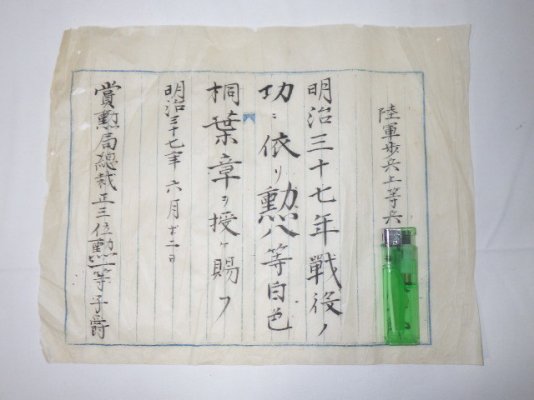 陸軍歩兵上等兵
明治三十七年戰役ノ
功ニ依リ勲八等白色
桐葉章ヲ授ケ賜フ
明治三十七年六月十二日
賞勲局總裁正三位勲一等子爵